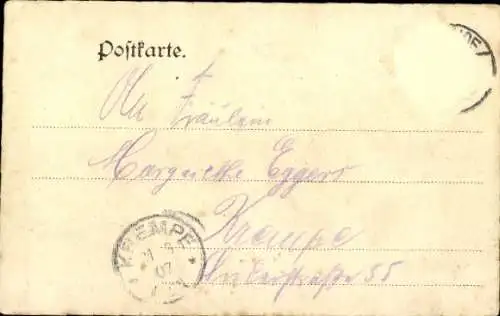 Postkarte.
An Fräulein
Margarethe Eggers
Krempe
55
KREMPE
07